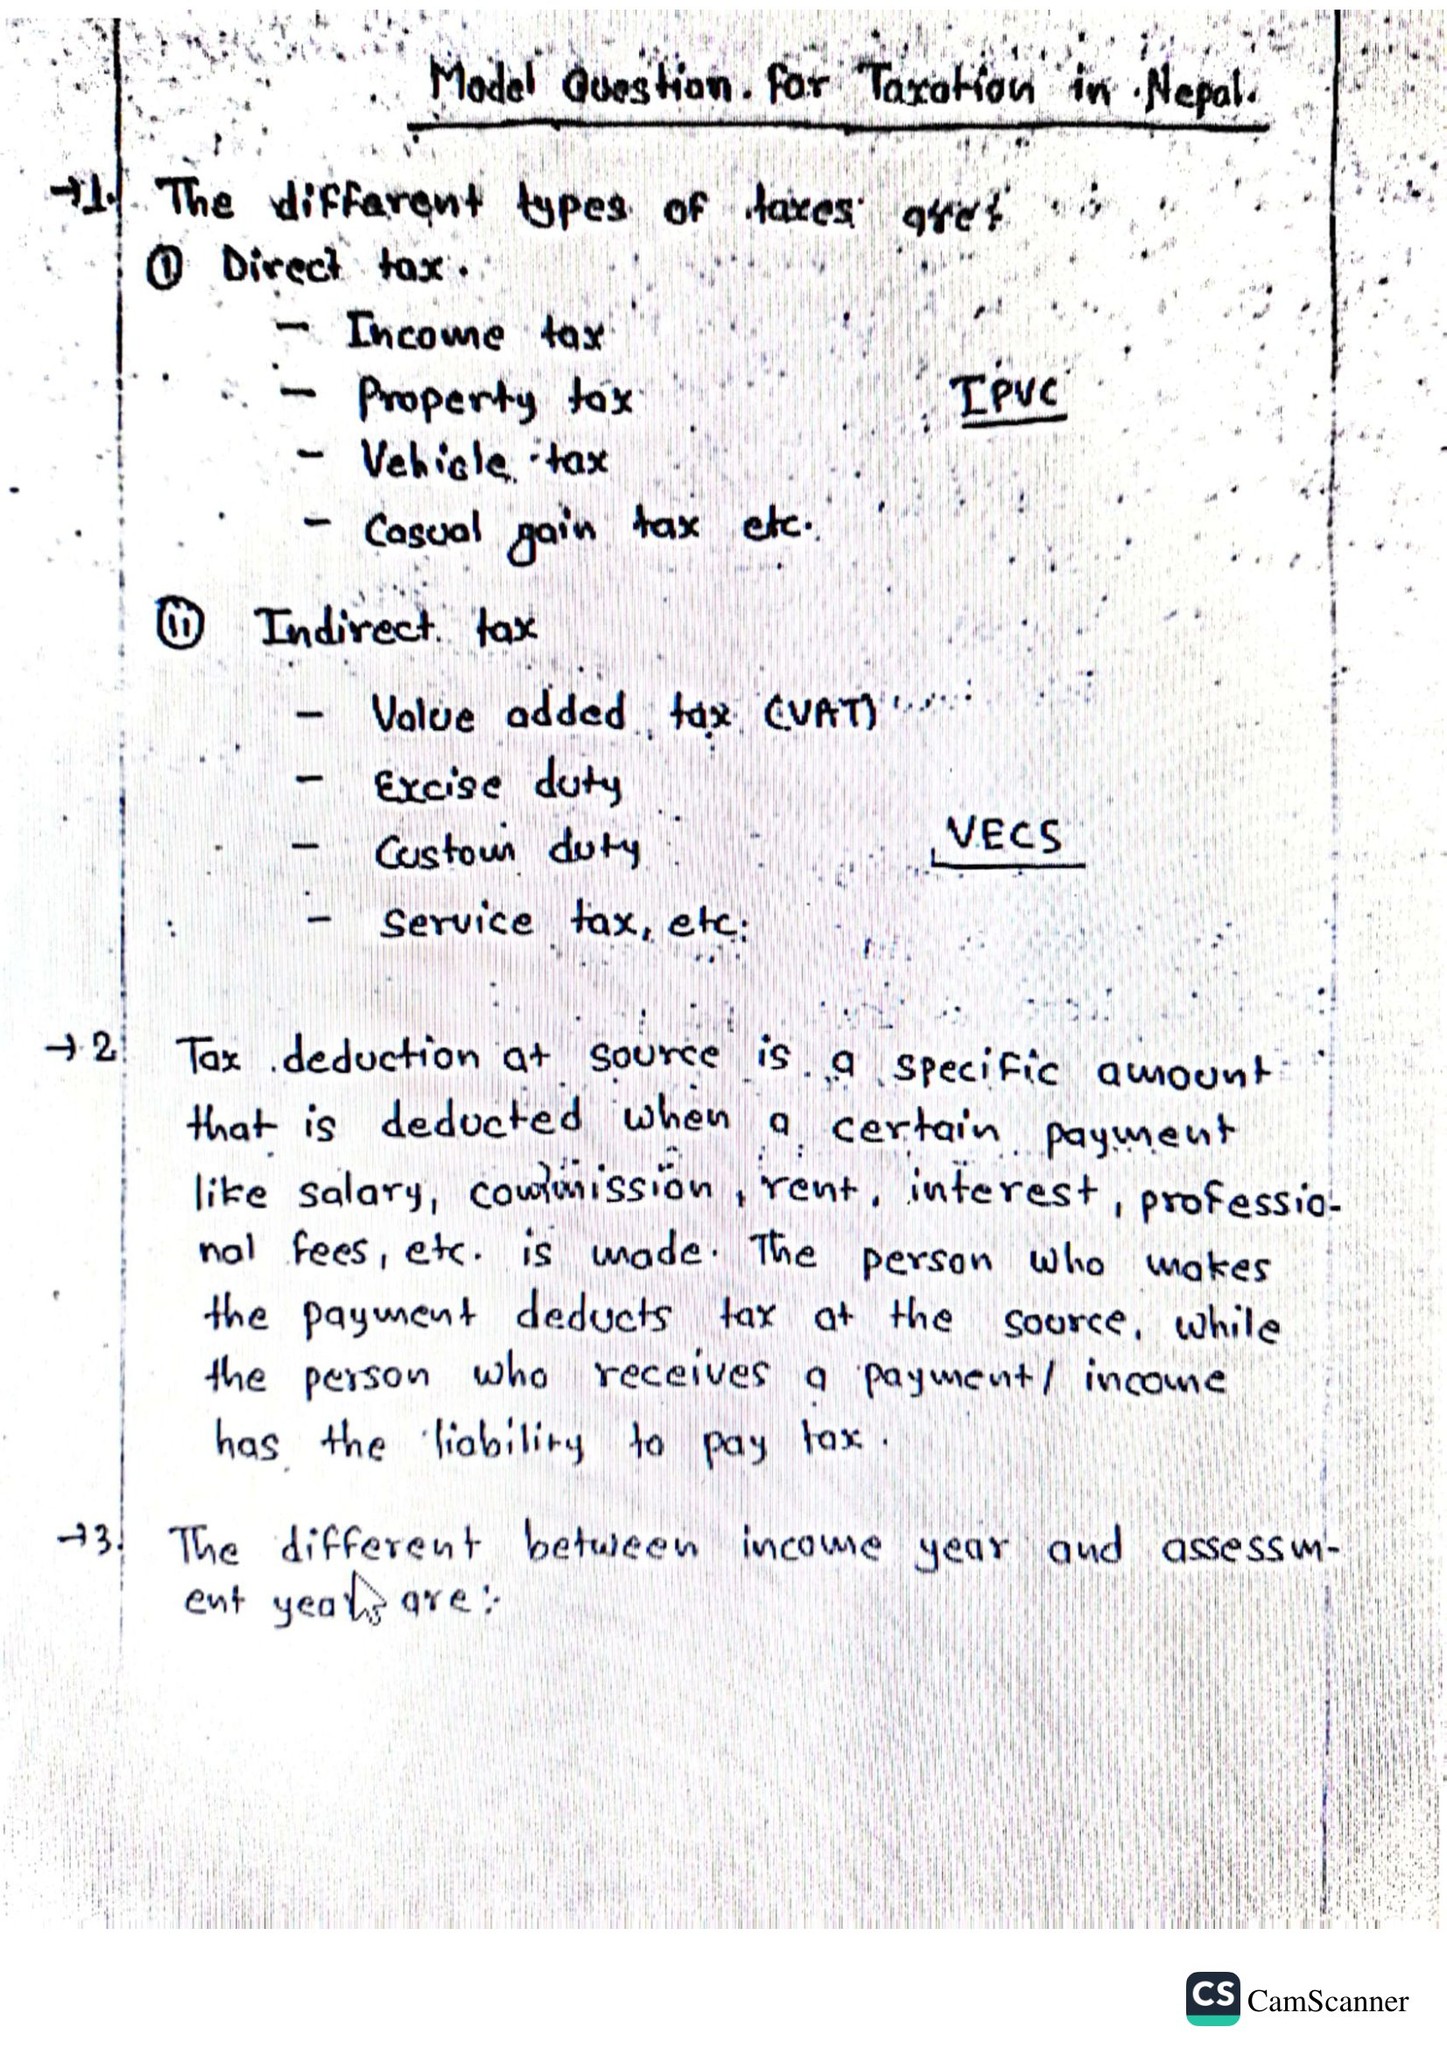 Model Question. for Taxation in Nepal.
→1. The different types of taxes are:
① Direct tax.
- Income tax
- Property tax
IPVC
- Vehicle tax
- Casual gain tax etc.
ⓘⓘ Indirect tax
- Value added tax (VAT)
- Excise duty
- Custom duty
VECS
- Service tax, etc.
→2. Tax deduction at source is a specific amount
that is deducted when a certain payment
like salary, commission, rent, interest, professio-
nal fees, etc. is made. The person who makes
the payment deducts tax at the source, while
the person who receives a payment/ income
has the liability to pay tax.
→3. The different between income year and assessm-
ent years are:
CS CamScanner